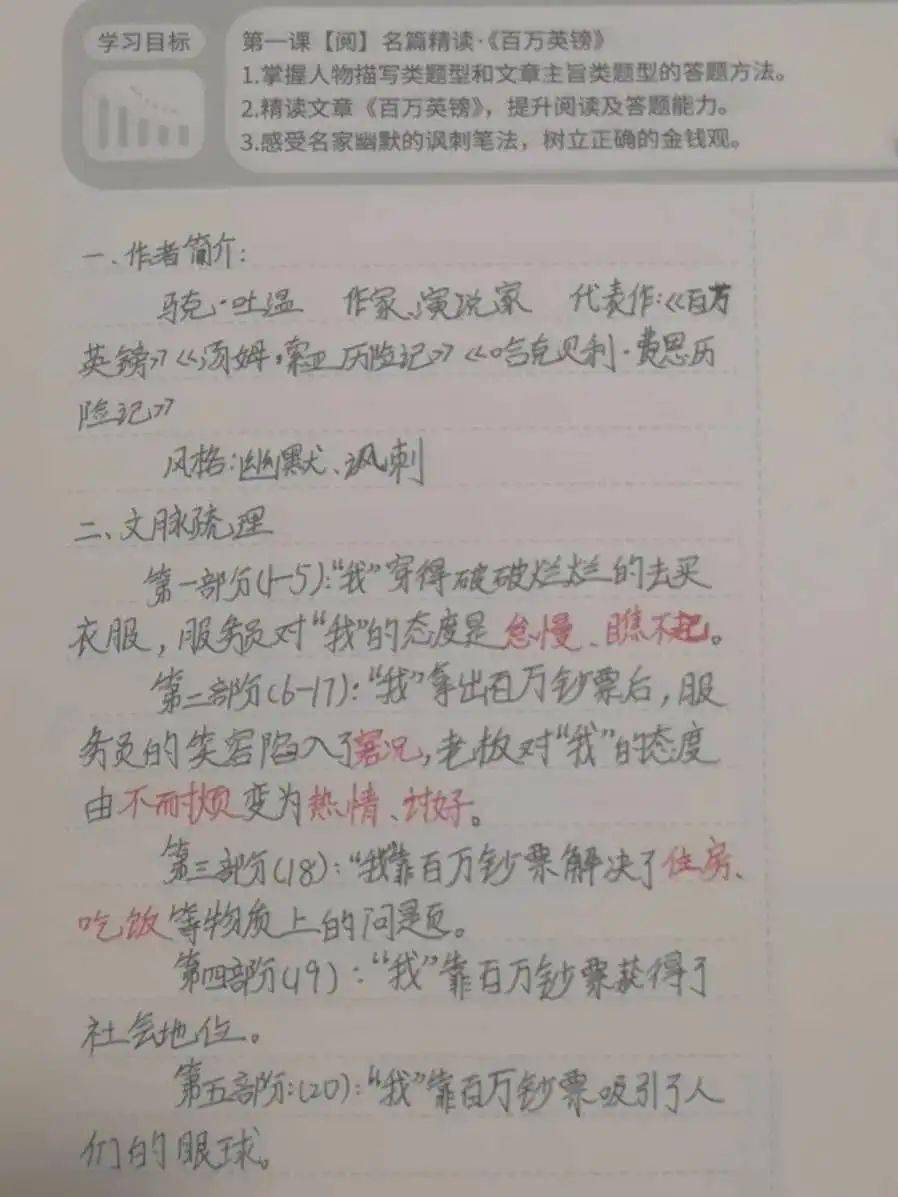 学习目标
第一课【阅】名篇精读·《百万英镑》
1.掌握人物描写类题型和文章主旨类题型的答题方法。
2.精读文章《百万英镑》，提升阅读及答题能力。
3.感受名家幽默的讽刺笔法，树立正确的金钱观。
一、作者简介：
马克·吐温 作家、演说家 代表作：《百万
英镑》《汤姆·索亚历险记》《哈克贝利·费恩历
险记》
风格：幽默、讽刺
二、文脉梳理
第一部分(1-5)：“我”穿得破破烂烂的去买
衣服，服务员对“我”的态度是怠慢、瞧不起。
第二部分(6-17)：“我”拿出百万钞票后，服
务员的笑容陷入了窘况，老板对“我”的态度
由不耐烦变为热情、讨好。
第三部分(18)：“我”靠百万钞票解决了住房、
吃饭等物质上的问题。
第四部分(19)：“我”靠百万钞票获得了
社会地位。
第五部分:(20)：“我”靠百万钞票吸引了人
们的眼球。